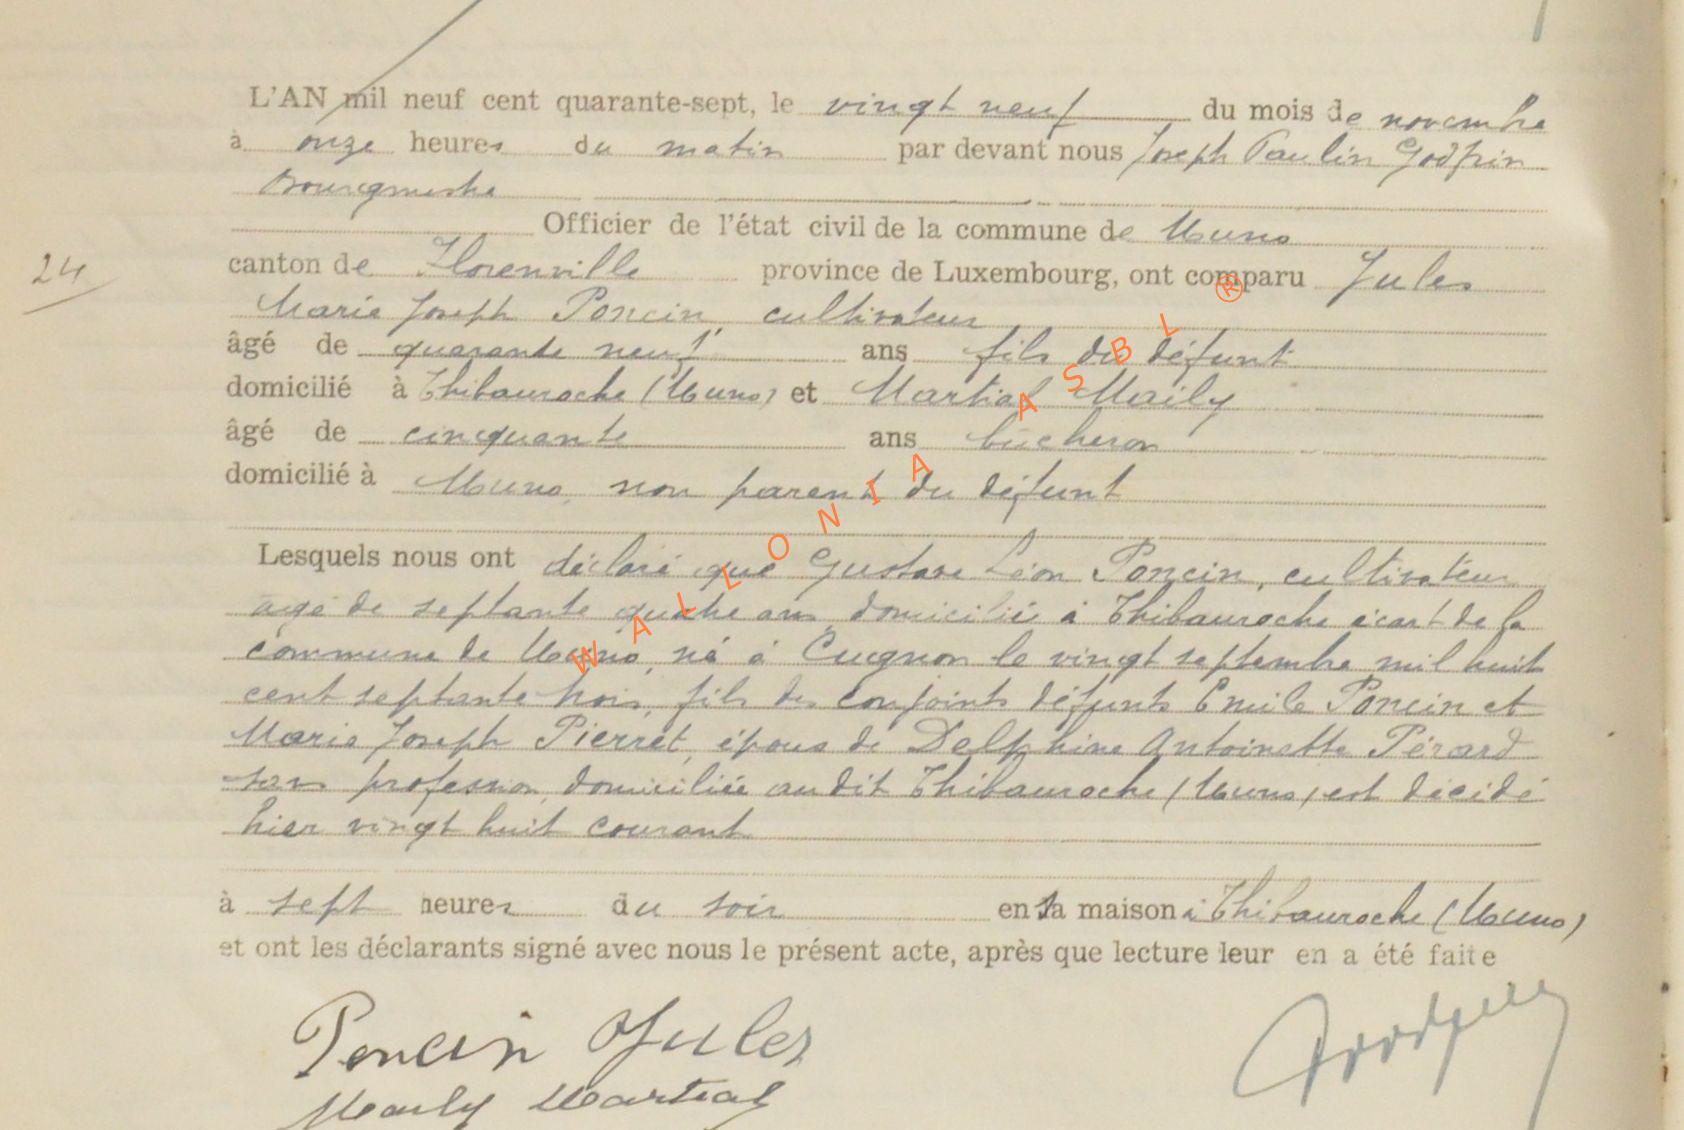 L'AN mil neuf cent quarante-sept, le vingt neuf du mois de novembre
à onze heures du matin par devant nous Joseph Paulin Godfrin
Bourgmestre
Officier de l'état civil de la commune de Muno
24
canton de Florenville province de Luxembourg, ont comparu Jules
Marie Joseph Poncin, cultivateur
âgé de quarante neuf ans fils du défunt
domicilié à Thibauroche (Muno) et Martial Maily
âgé de cinquante ans bûcheron
domicilié à Muno, non parent du défunt
Lesquels nous ont déclaré que Gustave Léon Poncin, cultivateur
âgé de septante quatre ans domicilié à Thibauroche écart de la
commune de Muno, né à Cugnon le vingt septembre mil huit
cent septante trois, fils des conjoints défunts Emile Poncin et
Marie Joseph Pierret, époux de Delphine Antoinette Pérard
sans profession, domiciliée audit Thibauroche (Muno) est décédé
hier vingt huit courant
à sept heures du soir en sa maison à Thibauroche (Muno)
et ont les déclarants signé avec nous le présent acte, après que lecture leur en a été faite
Poncin Jules
Maily Martial
Godfrin
WALLONIA ASBL ®